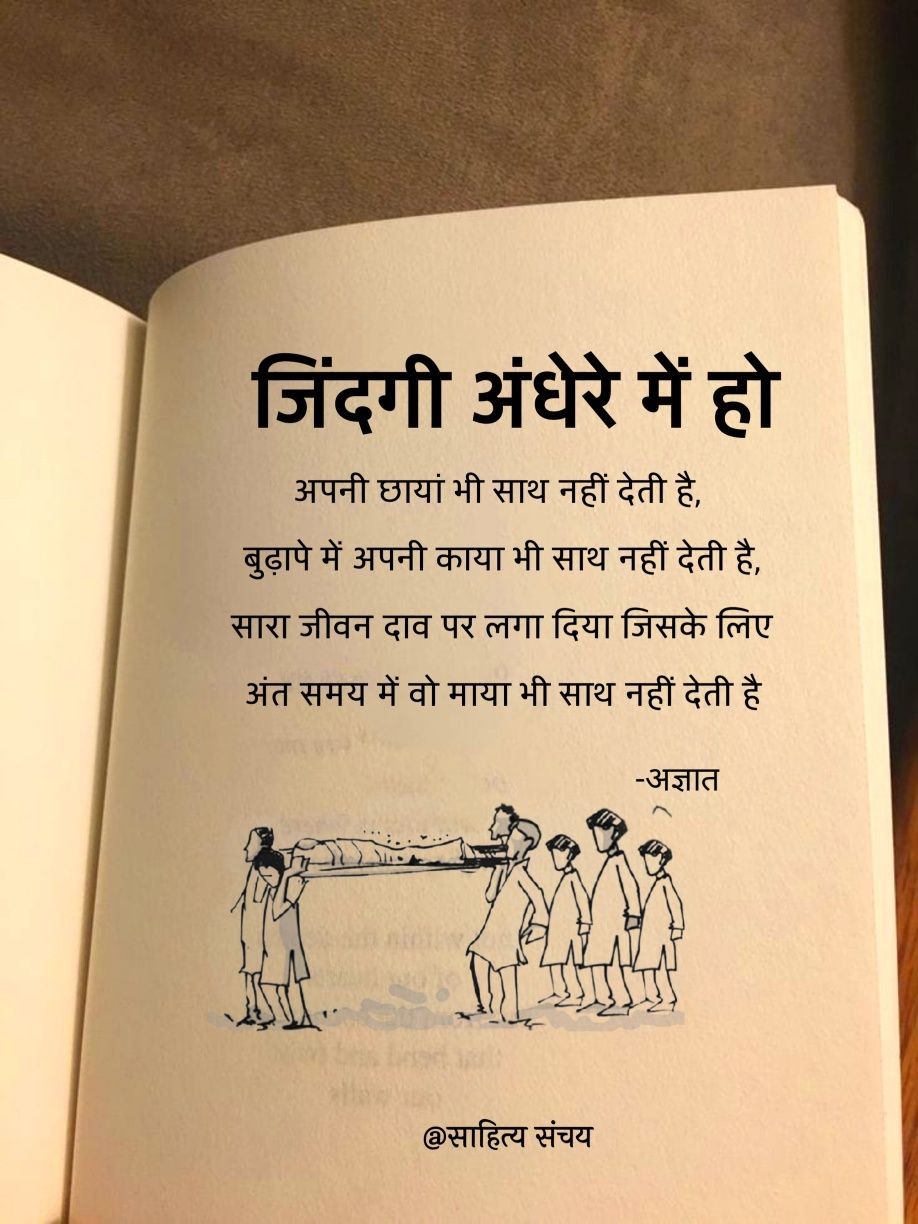 जिंदगी अंधेरे में हो
अपनी छायां भी साथ नहीं देती है,
बुढ़ापे में अपनी काया भी साथ नहीं देती है,
सारा जीवन दाव पर लगा दिया जिसके लिए
अंत समय में वो माया भी साथ नहीं देती है
-अज्ञात
@साहित्य संचय